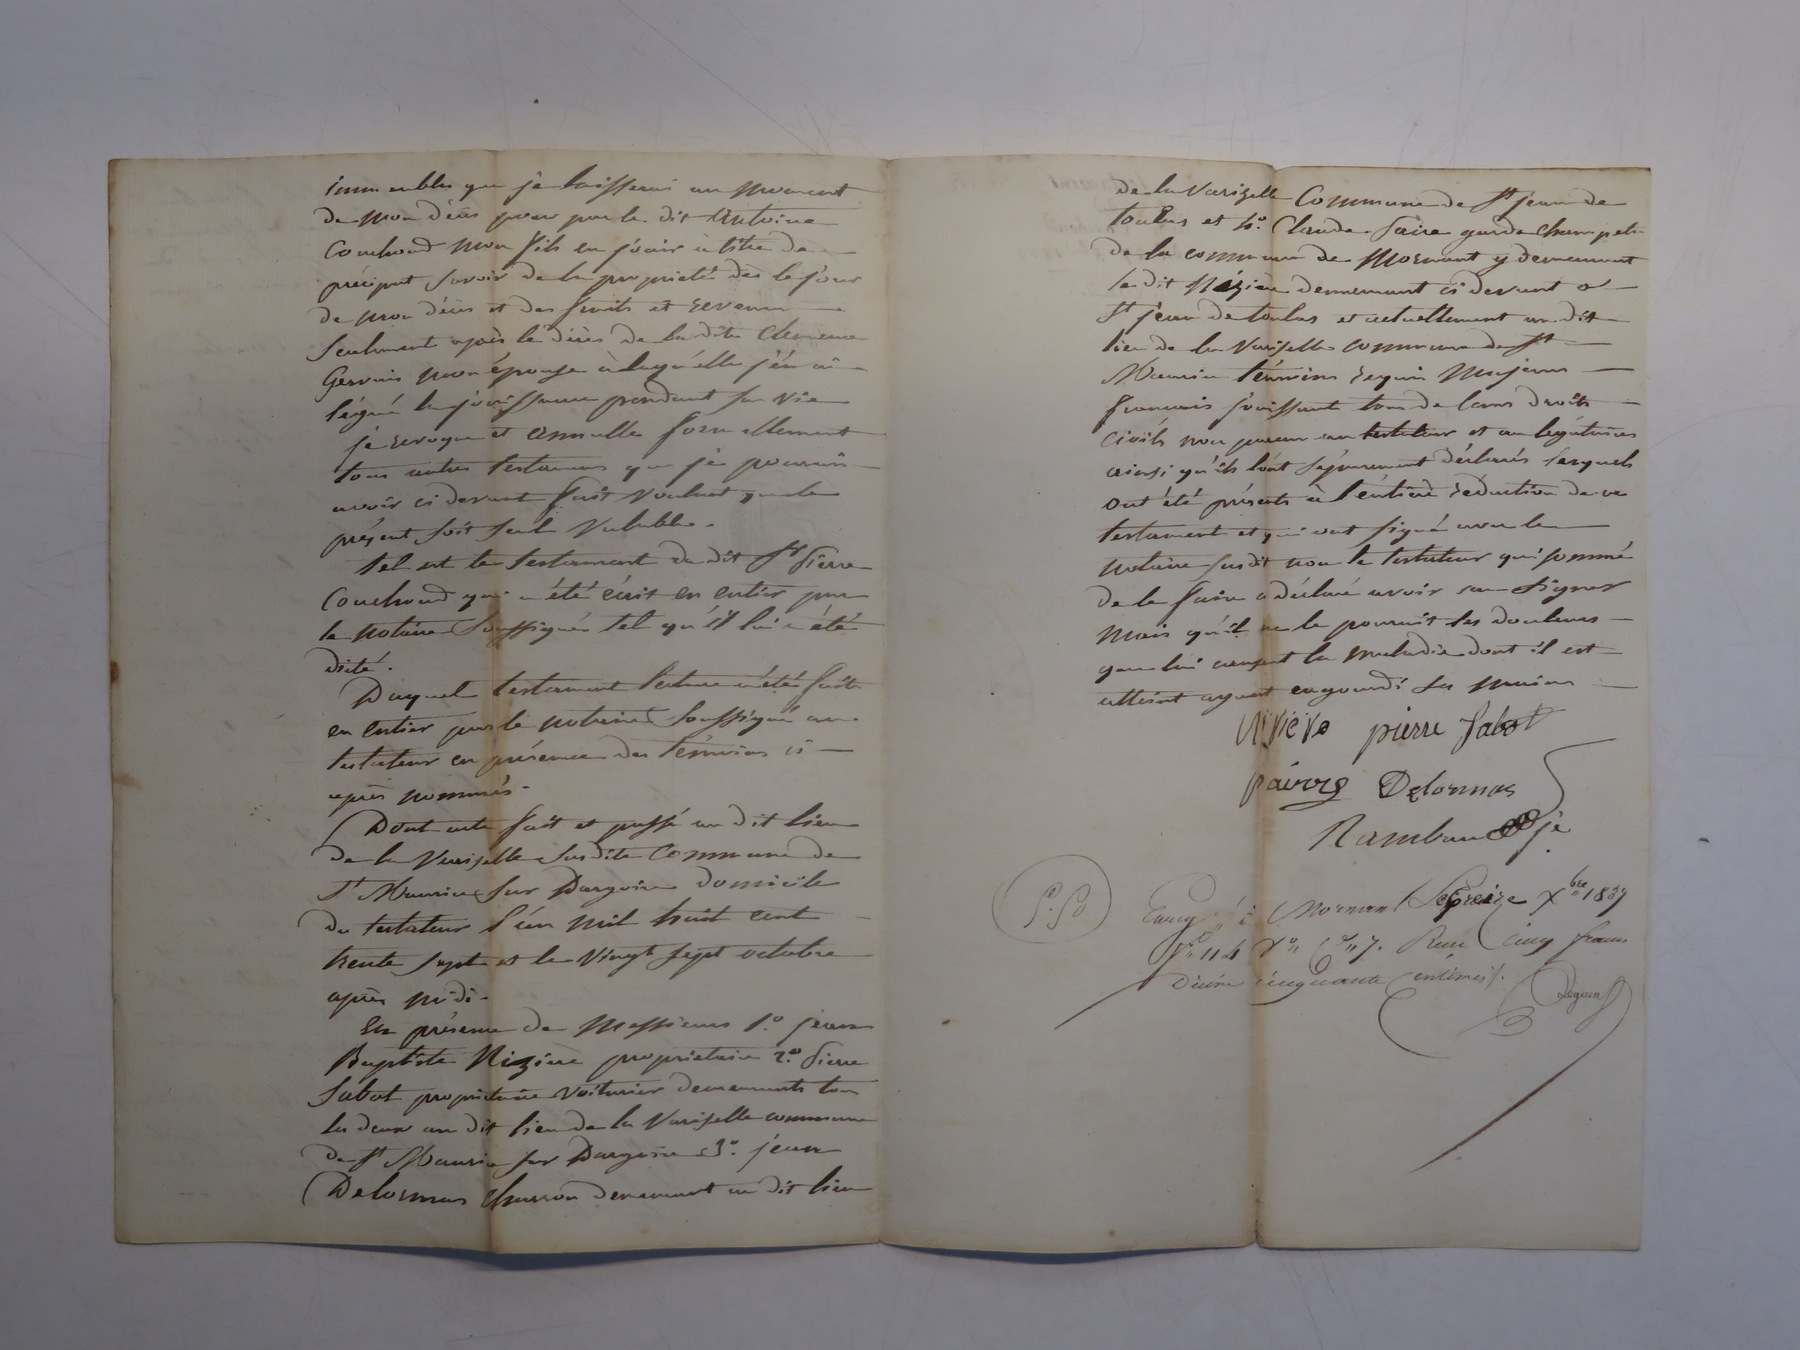 immeubles que je laisserai au moment
de mon décès pour par le dit Antoine
Couchoud mon fils en jouir à titre de
préciput savoir de la propriété dès le jour
de mon décès et des fruits et revenus
seulement après le décès de la dite Clemence
Gervais mon épouse à laquelle j'en ai
légué la jouissance pendant sa vie
je revoque et annulle formellement
tous autres testamens que je pourrais
avoir ci devant fait voulant que le
présent soit seul valable.
Tel est le testament du dit Sr Pierre
Couchoud qui a été écrit en entier par
le notaire soussigné tel qu'il lui a été
dicté.
Duquel testament lecture a été faite
en entier par le notaire soussigné au
testateur en présence des témoins ci
après nommés.
Dont acte fait et passé au dit lieu
de la Varizelle susdite Commune de
St Maurice sur Dargoire domicile
du testateur l'an mil huit cent
trente sept et le vingt sept octobre
après midi.
En présence de Messieurs 1.o jean
Baptiste Rizière propriétaire 2.o Pierre
Sabot propriétaire voiturier demeurants tous
les deux au dit lieu de la Varizelle commune
de St Maurice sur Dargoire 3.o jean
Delormas charron demeurant au dit lieu
de la Varizelle Commune de St jean de
toulas et 4.o Claude Faire garde champetre
de la commune de Mornant y demeurant
le dit Rizière demeurant ci devant a
St jean de toulas et actuellement au dit
lieu de la Varizelle commune de St
Maurice témoins requis Majeurs
français jouissant tous de leurs droits
civils non parens au testateur et au légataires
ainsi qu'ils l'ont séparement déclarés lesquels
ont été présents à l'entière rédaction de ce
testament et qui ont signé avec le
notaire susdit non le testateur qui sommé
de le faire a déclaré avoir su signer
mais qu'il ne le pouvait les douleurs
que lui causent la maladie dont il est
atteint ayant engourdi ses mains
pierre Sabot
Delormas
Rambaud
Enreg à Mornant le Treize Xbre 1837
fo 114 Vo Co 7. Reçu cinq francs
Décime cinquante centimes.